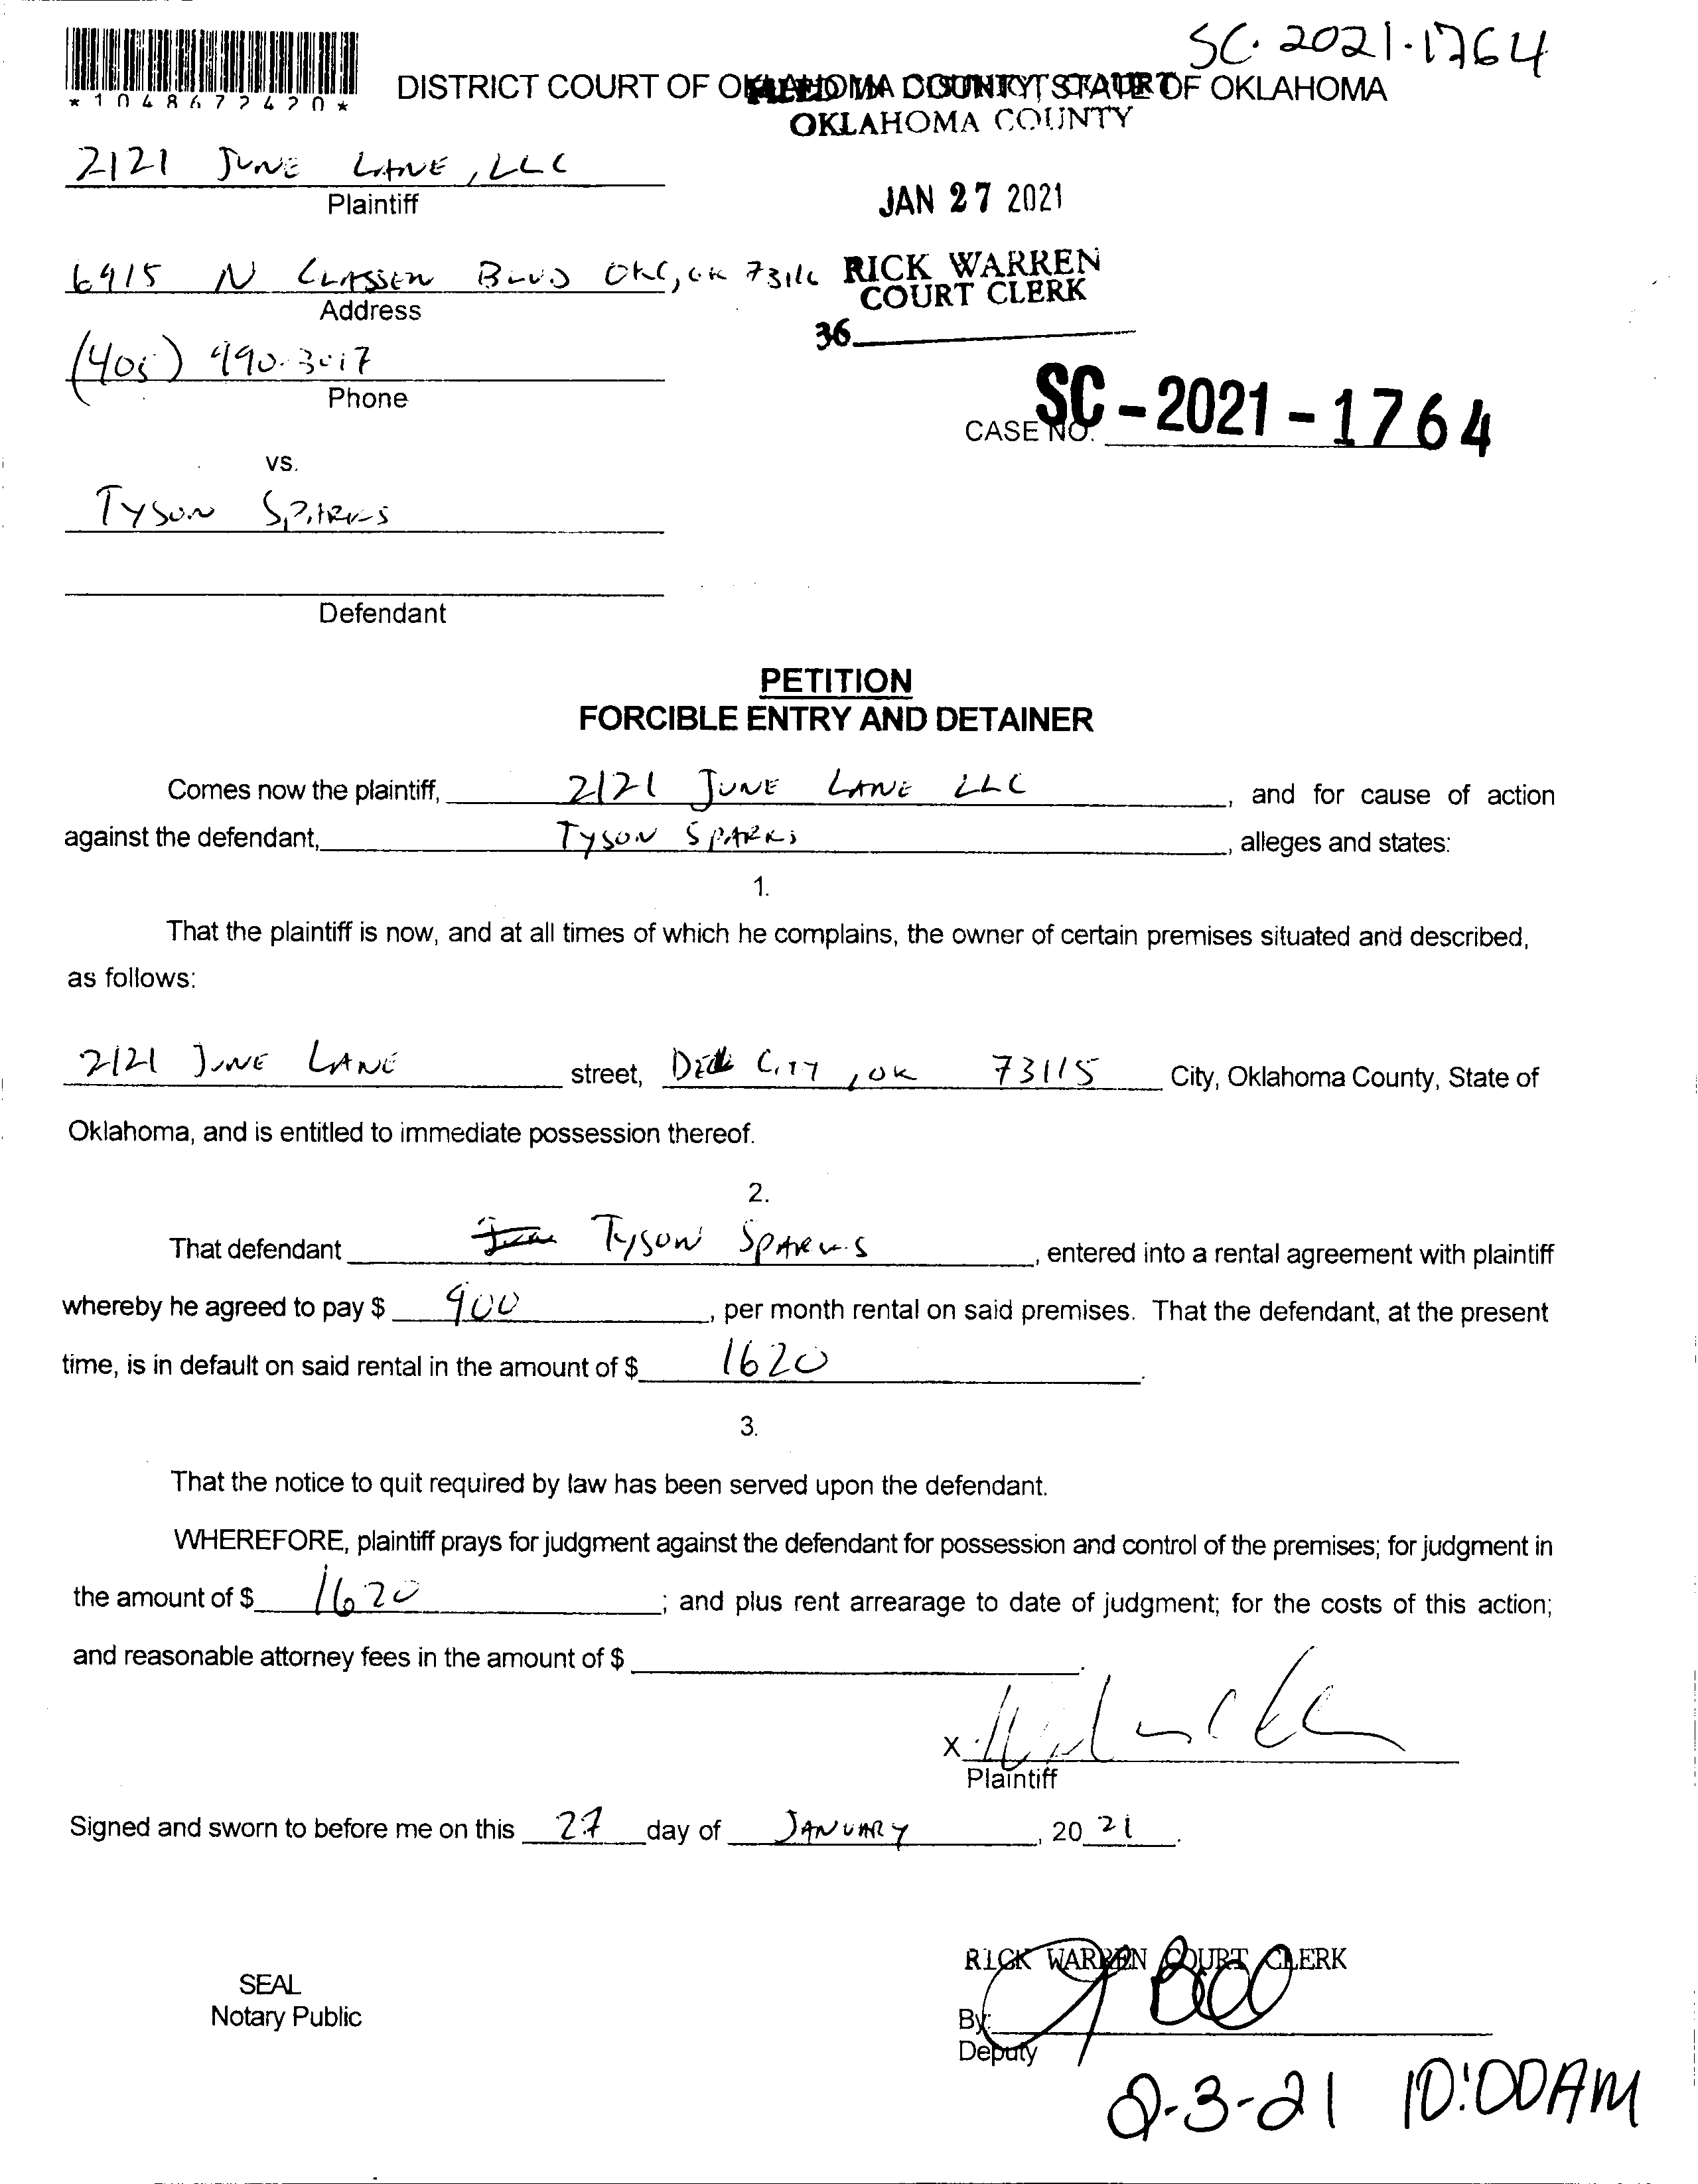 SC-2021-1764
*1048672420*
DISTRICT COURT OF OKLAHOMA COUNTY, STATE OF OKLAHOMA
FILED IN DISTRICT COURT
OKLAHOMA COUNTY
2121 JUNE LANE, LLC
Plaintiff
JAN 27 2021
6915 N CLASSEN BLVD OKC, OK 73116
Address
RICK WARREN
COURT CLERK
36
(405) 990-3017
Phone
CASE NO. SC-2021-1764
vs.
TYSON SPARKS
Defendant
PETITION
FORCIBLE ENTRY AND DETAINER
Comes now the plaintiff, 2121 JUNE LANE LLC, and for cause of action
against the defendant, TYSON SPARKS, alleges and states:
1.
That the plaintiff is now, and at all times of which he complains, the owner of certain premises situated and described,
as follows:
2121 JUNE LANE street, DEL CITY, OK 73115 City, Oklahoma County, State of
Oklahoma, and is entitled to immediate possession thereof.
2.
That defendant TYSON SPARKS, entered into a rental agreement with plaintiff
whereby he agreed to pay $ 900, per month rental on said premises. That the defendant, at the present
time, is in default on said rental in the amount of $ 1620.
3.
That the notice to quit required by law has been served upon the defendant.
WHEREFORE, plaintiff prays for judgment against the defendant for possession and control of the premises; for judgment in
the amount of $ 1620; and plus rent arrearage to date of judgment; for the costs of this action;
and reasonable attorney fees in the amount of $.
X
Plaintiff
Signed and sworn to before me on this 27 day of JANUARY, 20 21.
RICK WARREN COURT CLERK
SEAL
Notary Public
By:
Deputy
2-3-21 10:00AM